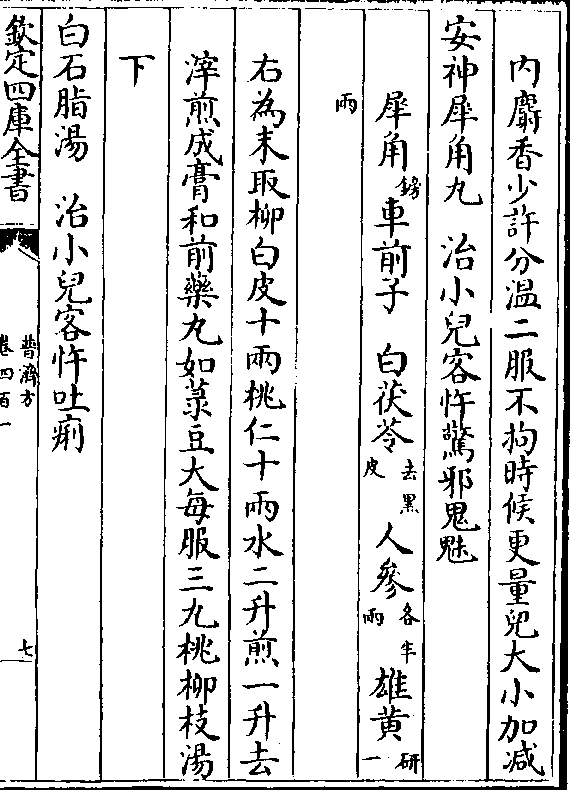 内麝香少許分溫二服不拘時候更量兒大小加减
安神犀角丸　治小兒客忤驚邪鬼魅
犀角鎊車前子　白茯苓去黑皮人參各半兩雄黄研一
兩
右為末取柳白皮十兩桃仁十兩水二升煎一升去
滓煎成膏和前藥丸如菉豆大每服三丸桃柳枝湯
下
白石脂湯　治小兒客忤吐痢
欽定四庫全書
普濟方
卷四百一
七